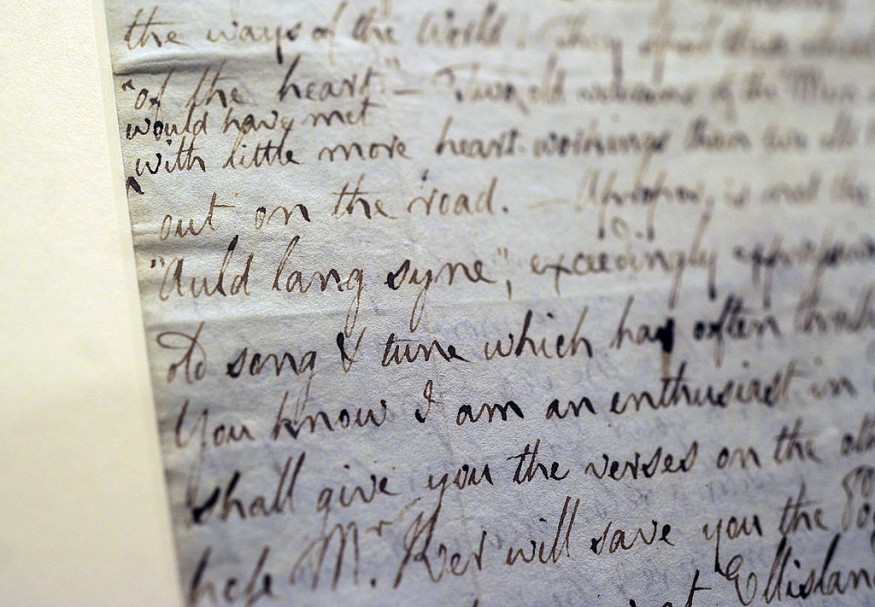 the ways of the World! They spend their
"of the heart" — Two old veterans of the
would have met
with little more heart-workings than we all
out on the road. — Apropos, is not the
"Auld lang syne", exceedingly
old song & tune which has often
You know I am an enthusiast in
shall give you the verses on the
Mr. Ker will save you the
Ellisland